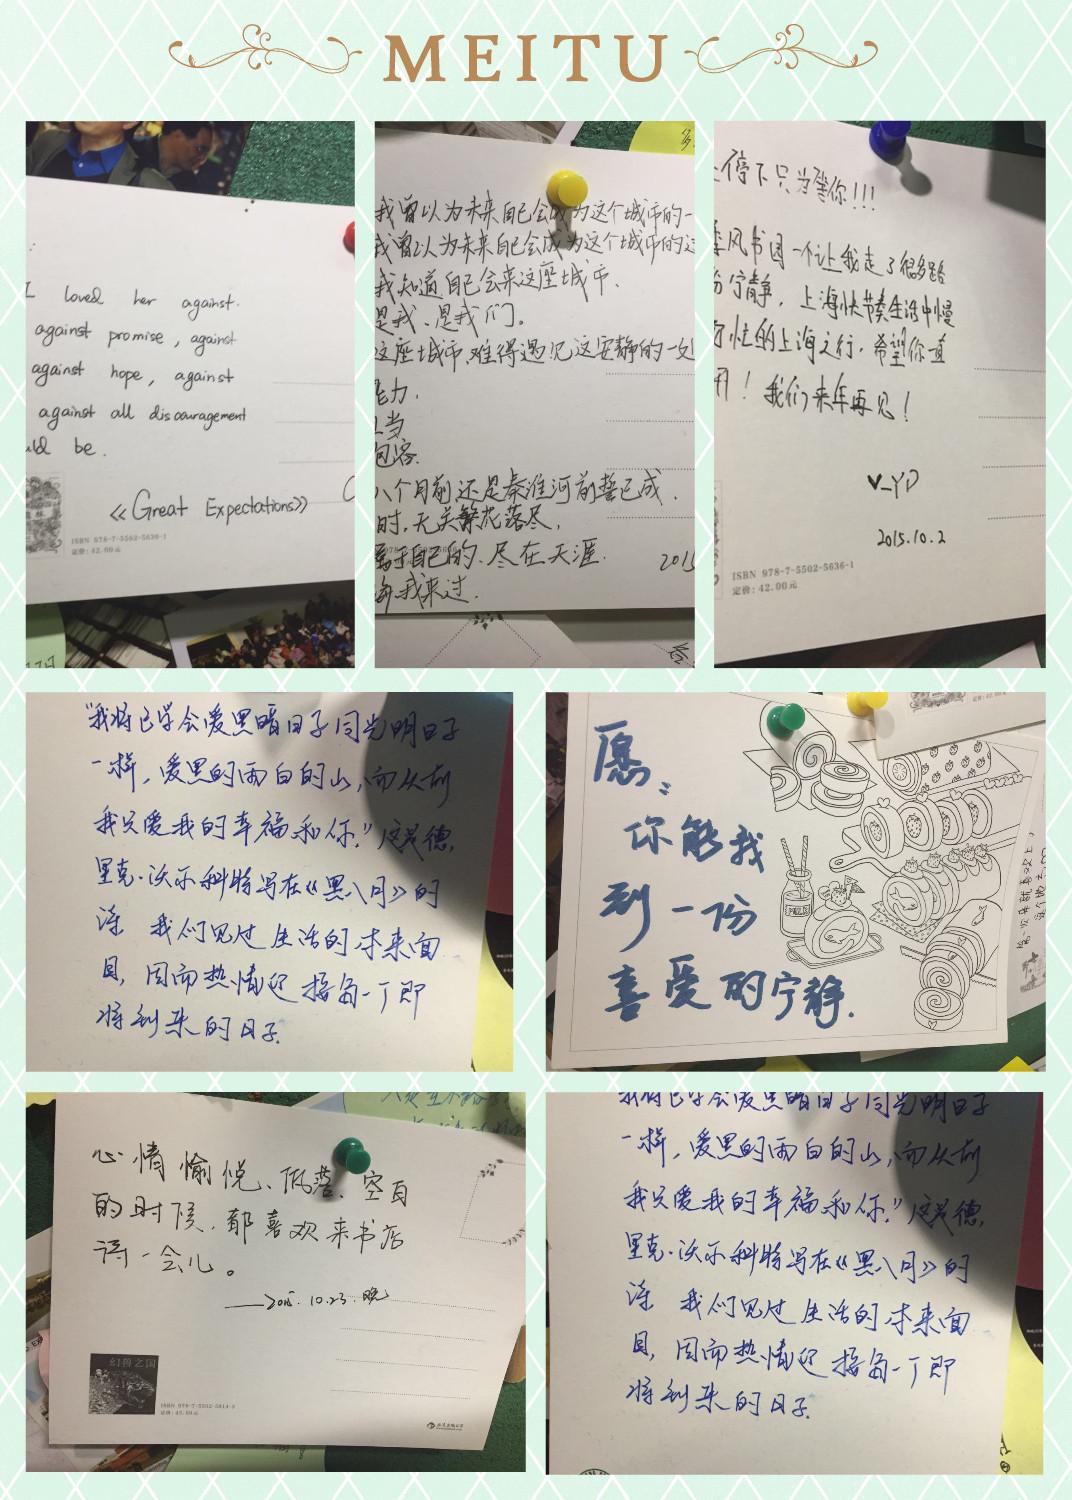 MEITU
I loved her against
against promise, against
against hope, against
against all discouragement
uld be.
《Great Expectations》
ISBN 978-7-5502-5636-1
定价: 42.00元
我曾以为未来自己会成为这个城市的一
我曾以为未来自己会成为这个城市的过
我知道自己会来这座城市、
是我、是我们。
这座城市,难得遇见这安静的一
能力.
担当
包容.
八个月前还是秦淮河前誓已成.
时,无关繁花落尽,
属于自己的.尽在天涯.
海,我来过.
2015
停下只为等你!!!
季风书园一个让我走了很多路
份宁静,上海快节奏生活中慢
匆忙的上海之行.希望你一直
开!我们来年再见!
♥_YD
2015.10.2
ISBN 978-7-5502-5636-1
定价: 42.00元
"我将已学会爱黑暗日子同光明日子
一样,爱黑的雨白的山,而从前
我只爱我的幸福和你."这是德.
里克·沃尔科特写在《黑八月》的
诗 我们见过生活的本来面
目,因而热情迎接每一个即
将到来的日子.
愿:
你能找
到一份
喜爱的宁静.
心情愉悦、低落、空白
的时候,都喜欢来书店
待一会儿。
——2015.10.23.晚
幻兽之国
ISBN 978-7-5502-5814-3
定价: 45.00元
我将已学会爱黑暗日子同光明日子
一样,爱黑的雨白的山,而从前
我只爱我的幸福和你."这是德.
里克·沃尔科特写在《黑八月》的
诗 我们见过生活的本来面
目,因而热情迎接每一个即
将到来的日子.